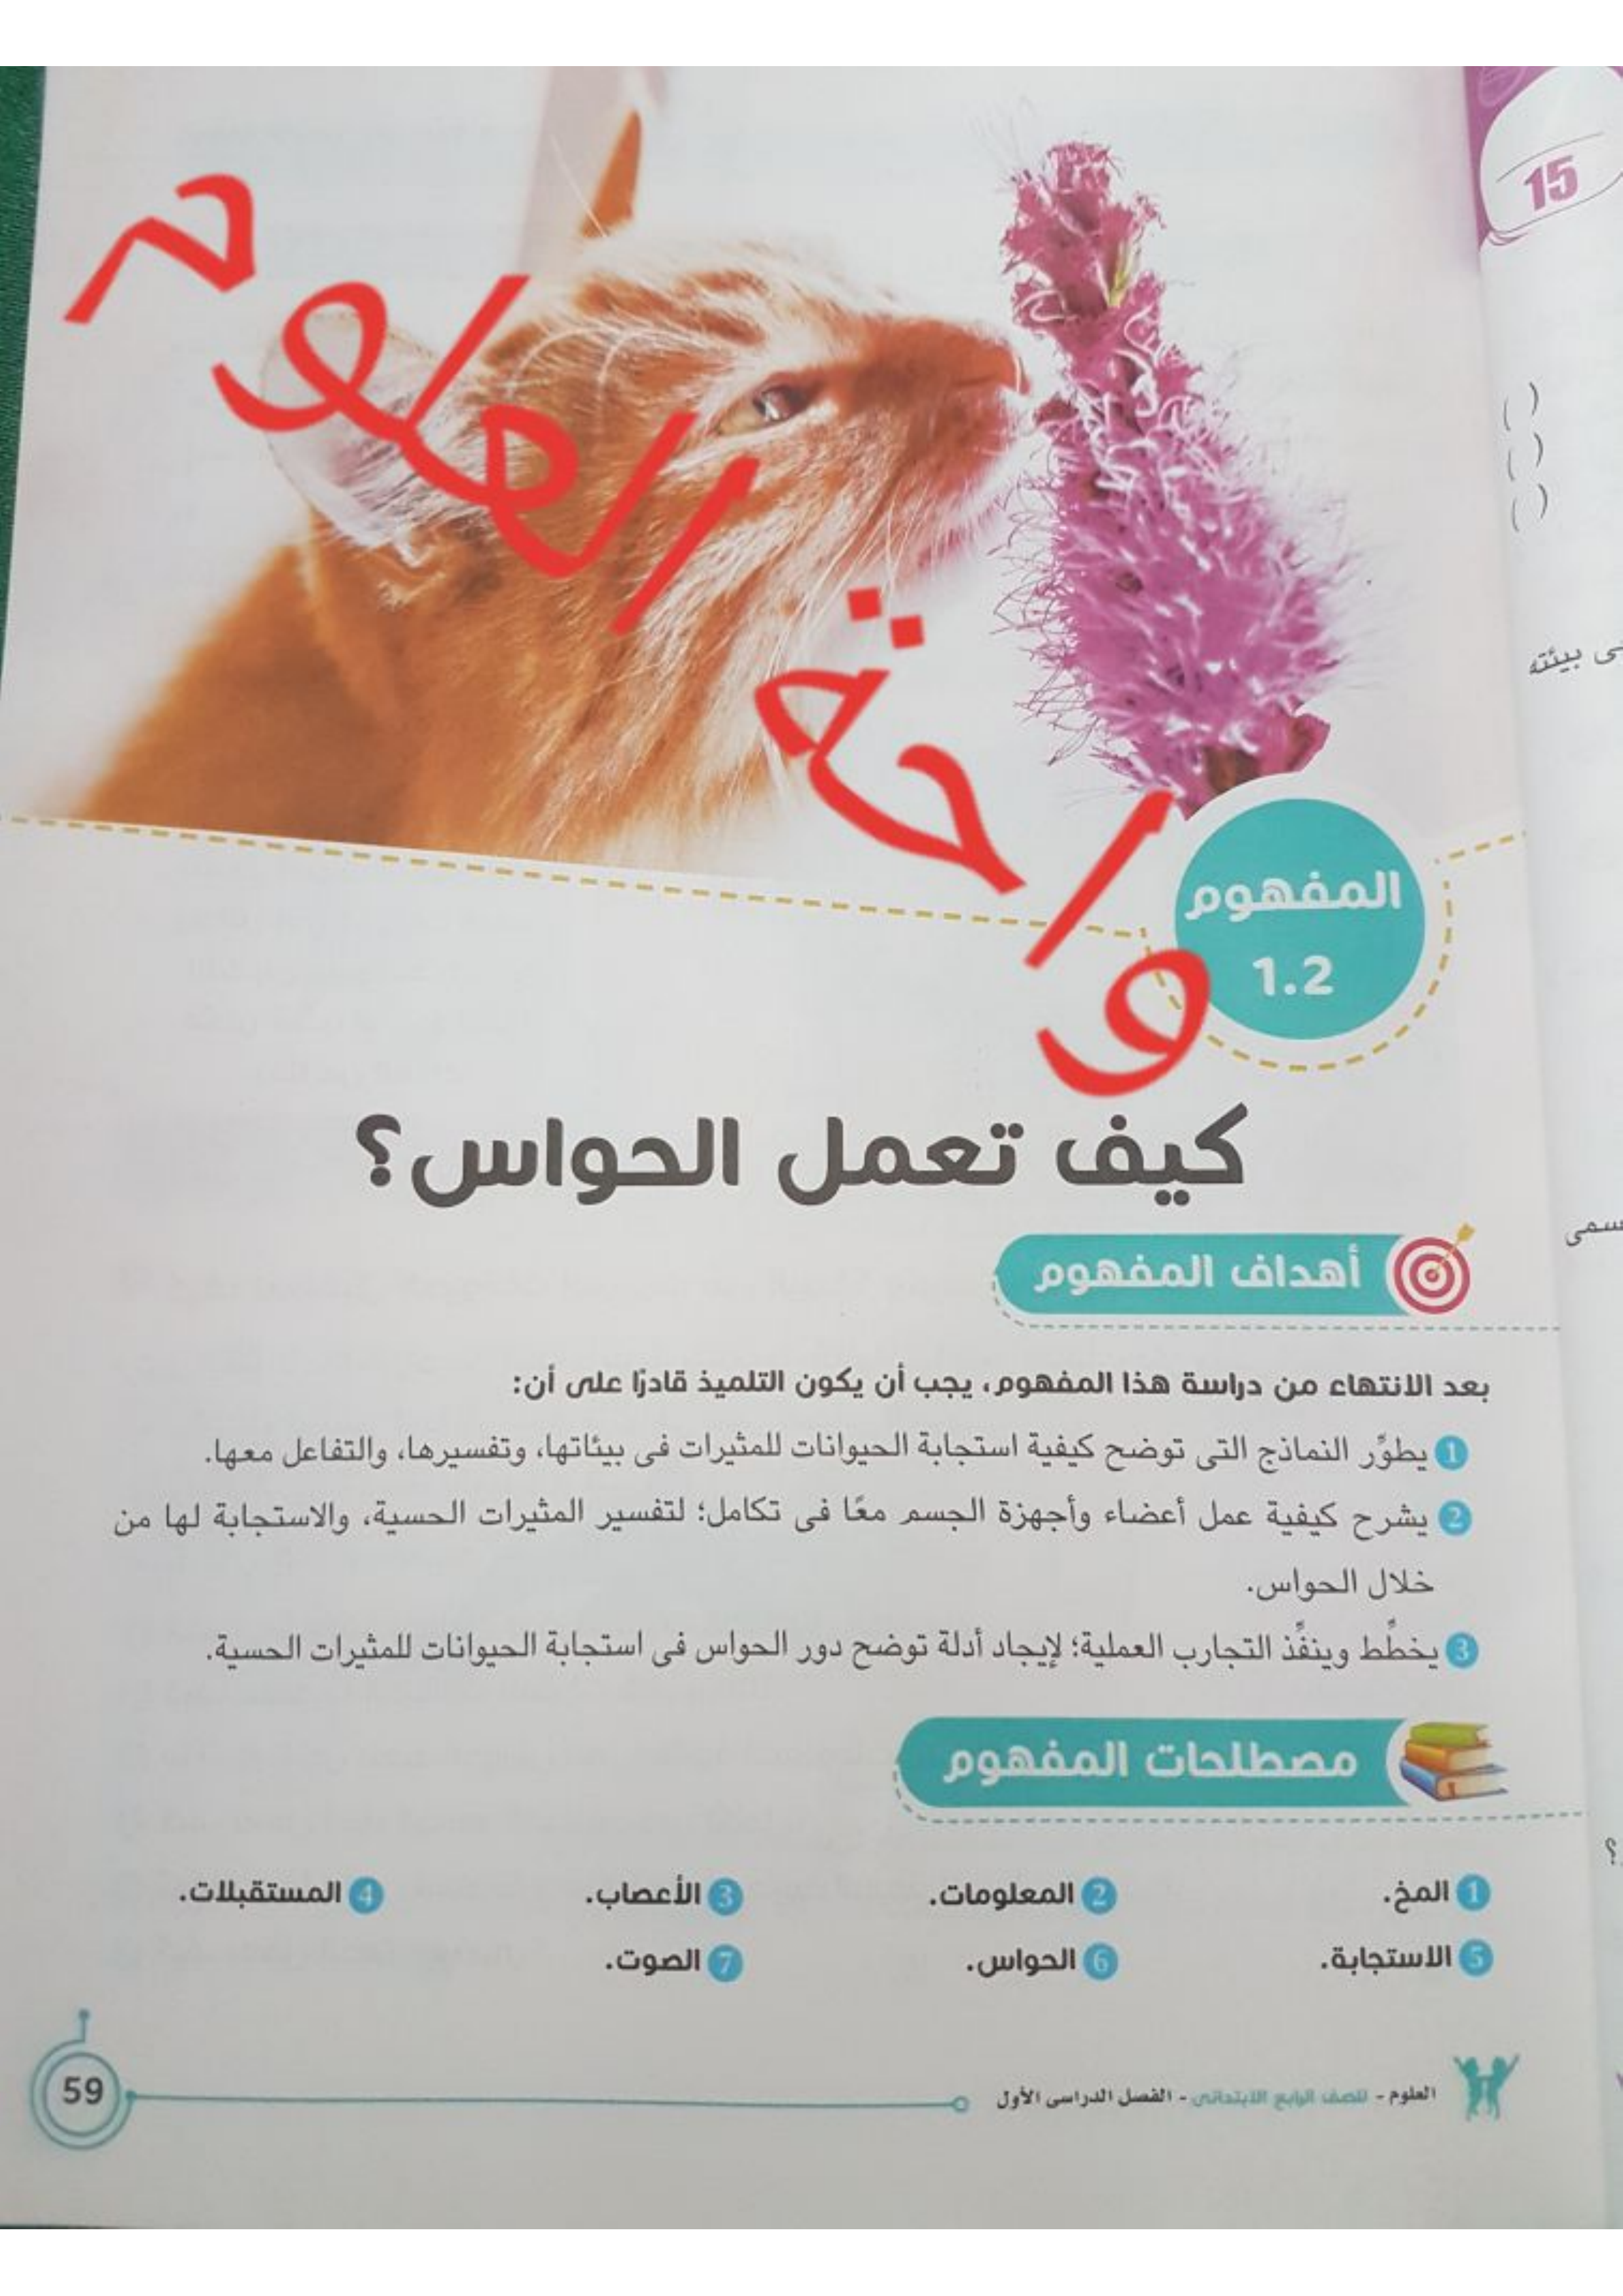 15
( )
( )
( )
ى بيئته
واحة العلوم
المفهوم
1.2
كيف تعمل الحواس؟
أهداف المفهوم
بعد الانتهاء من دراسة هذا المفهوم، يجب أن يكون التلميذ قادرًا على أن:
1 يطوِّر النماذج التى توضح كيفية استجابة الحيوانات للمثيرات فى بيئاتها، وتفسيرها، والتفاعل معها.
2 يشرح كيفية عمل أعضاء وأجهزة الجسم معًا فى تكامل؛ لتفسير المثيرات الحسية، والاستجابة لها من
خلال الحواس.
3 يخطِّط وينفِّذ التجارب العملية؛ لإيجاد أدلة توضح دور الحواس فى استجابة الحيوانات للمثيرات الحسية.
مصطلحات المفهوم
1 المخ. 2 المعلومات. 3 الأعصاب. 4 المستقبلات.
5 الاستجابة. 6 الحواس. 7 الصوت.
العلوم - للصف الرابع الابتدائى - الفصل الدراسى الأول
59